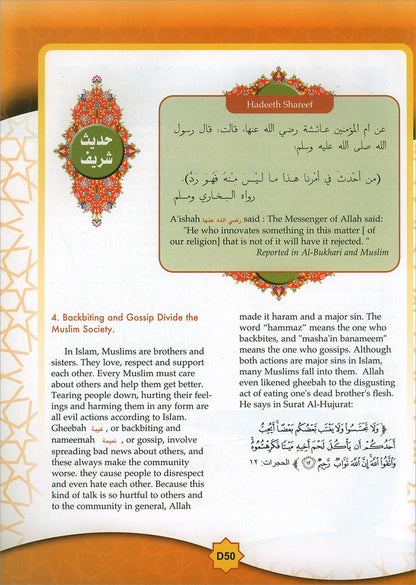 Hadeeth Shareef
حديث
شريف
عن ام المؤمنين عائشة رضي الله عنها، قالت: قال رسول
الله صلى الله عليه وسلم:
(من أحدث في أمرنا هذا ما ليس منه فهو رد)
رواه البخاري ومسلم
A'ishah رضي الله عنها said : The Messenger of Allah said:
"He who innovates something in this matter [ of
our religion] that is not of it will have it rejected. "
Reported in Al-Bukhari and Muslim
4. Backbiting and Gossip Divide the
Muslim Society.
In Islam, Muslims are brothers and
sisters. They love, respect and support
each other. Every Muslim must care
about others and help them get better.
Tearing people down, hurting their feel-
ings and harming them in any form are
all evil actions according to Islam.
Gheebah غيبة, or backbiting and
nameemah نميمة, or gossip, involve
spreading bad news about others, and
these always make the community
worse. they cause people to disrespect
and even hate each other. Because this
kind of talk is so hurtful to others and
to the community in general, Allah
made it haram and a major sin. The
word "hammaz" means the one who
backbites, and "masha'in banameem"
means the one who gossips. Although
both actions are major sins in Islam,
many Muslims fall into them. Allah
even likened gheebah to the disgusting
act of eating one's dead brother's flesh.
He says in Surat Al-Hujurat:
﴿ وَلَا تَجَسَّسُوا وَلَا يَغْتَب بَّعْضُكُم بَعْضًا أَيُحِبُّ
أَحَدُكُمْ أَن يَأْكُلَ لَحْمَ أَخِيهِ مَيْتًا فَكَرِهْتُمُوهُ
وَاتَّقُوا اللَّهَ إِنَّ اللَّهَ تَوَّابٌ رَّحِيمٌ ١٢ ﴾ الحجرات: ١٢
D50